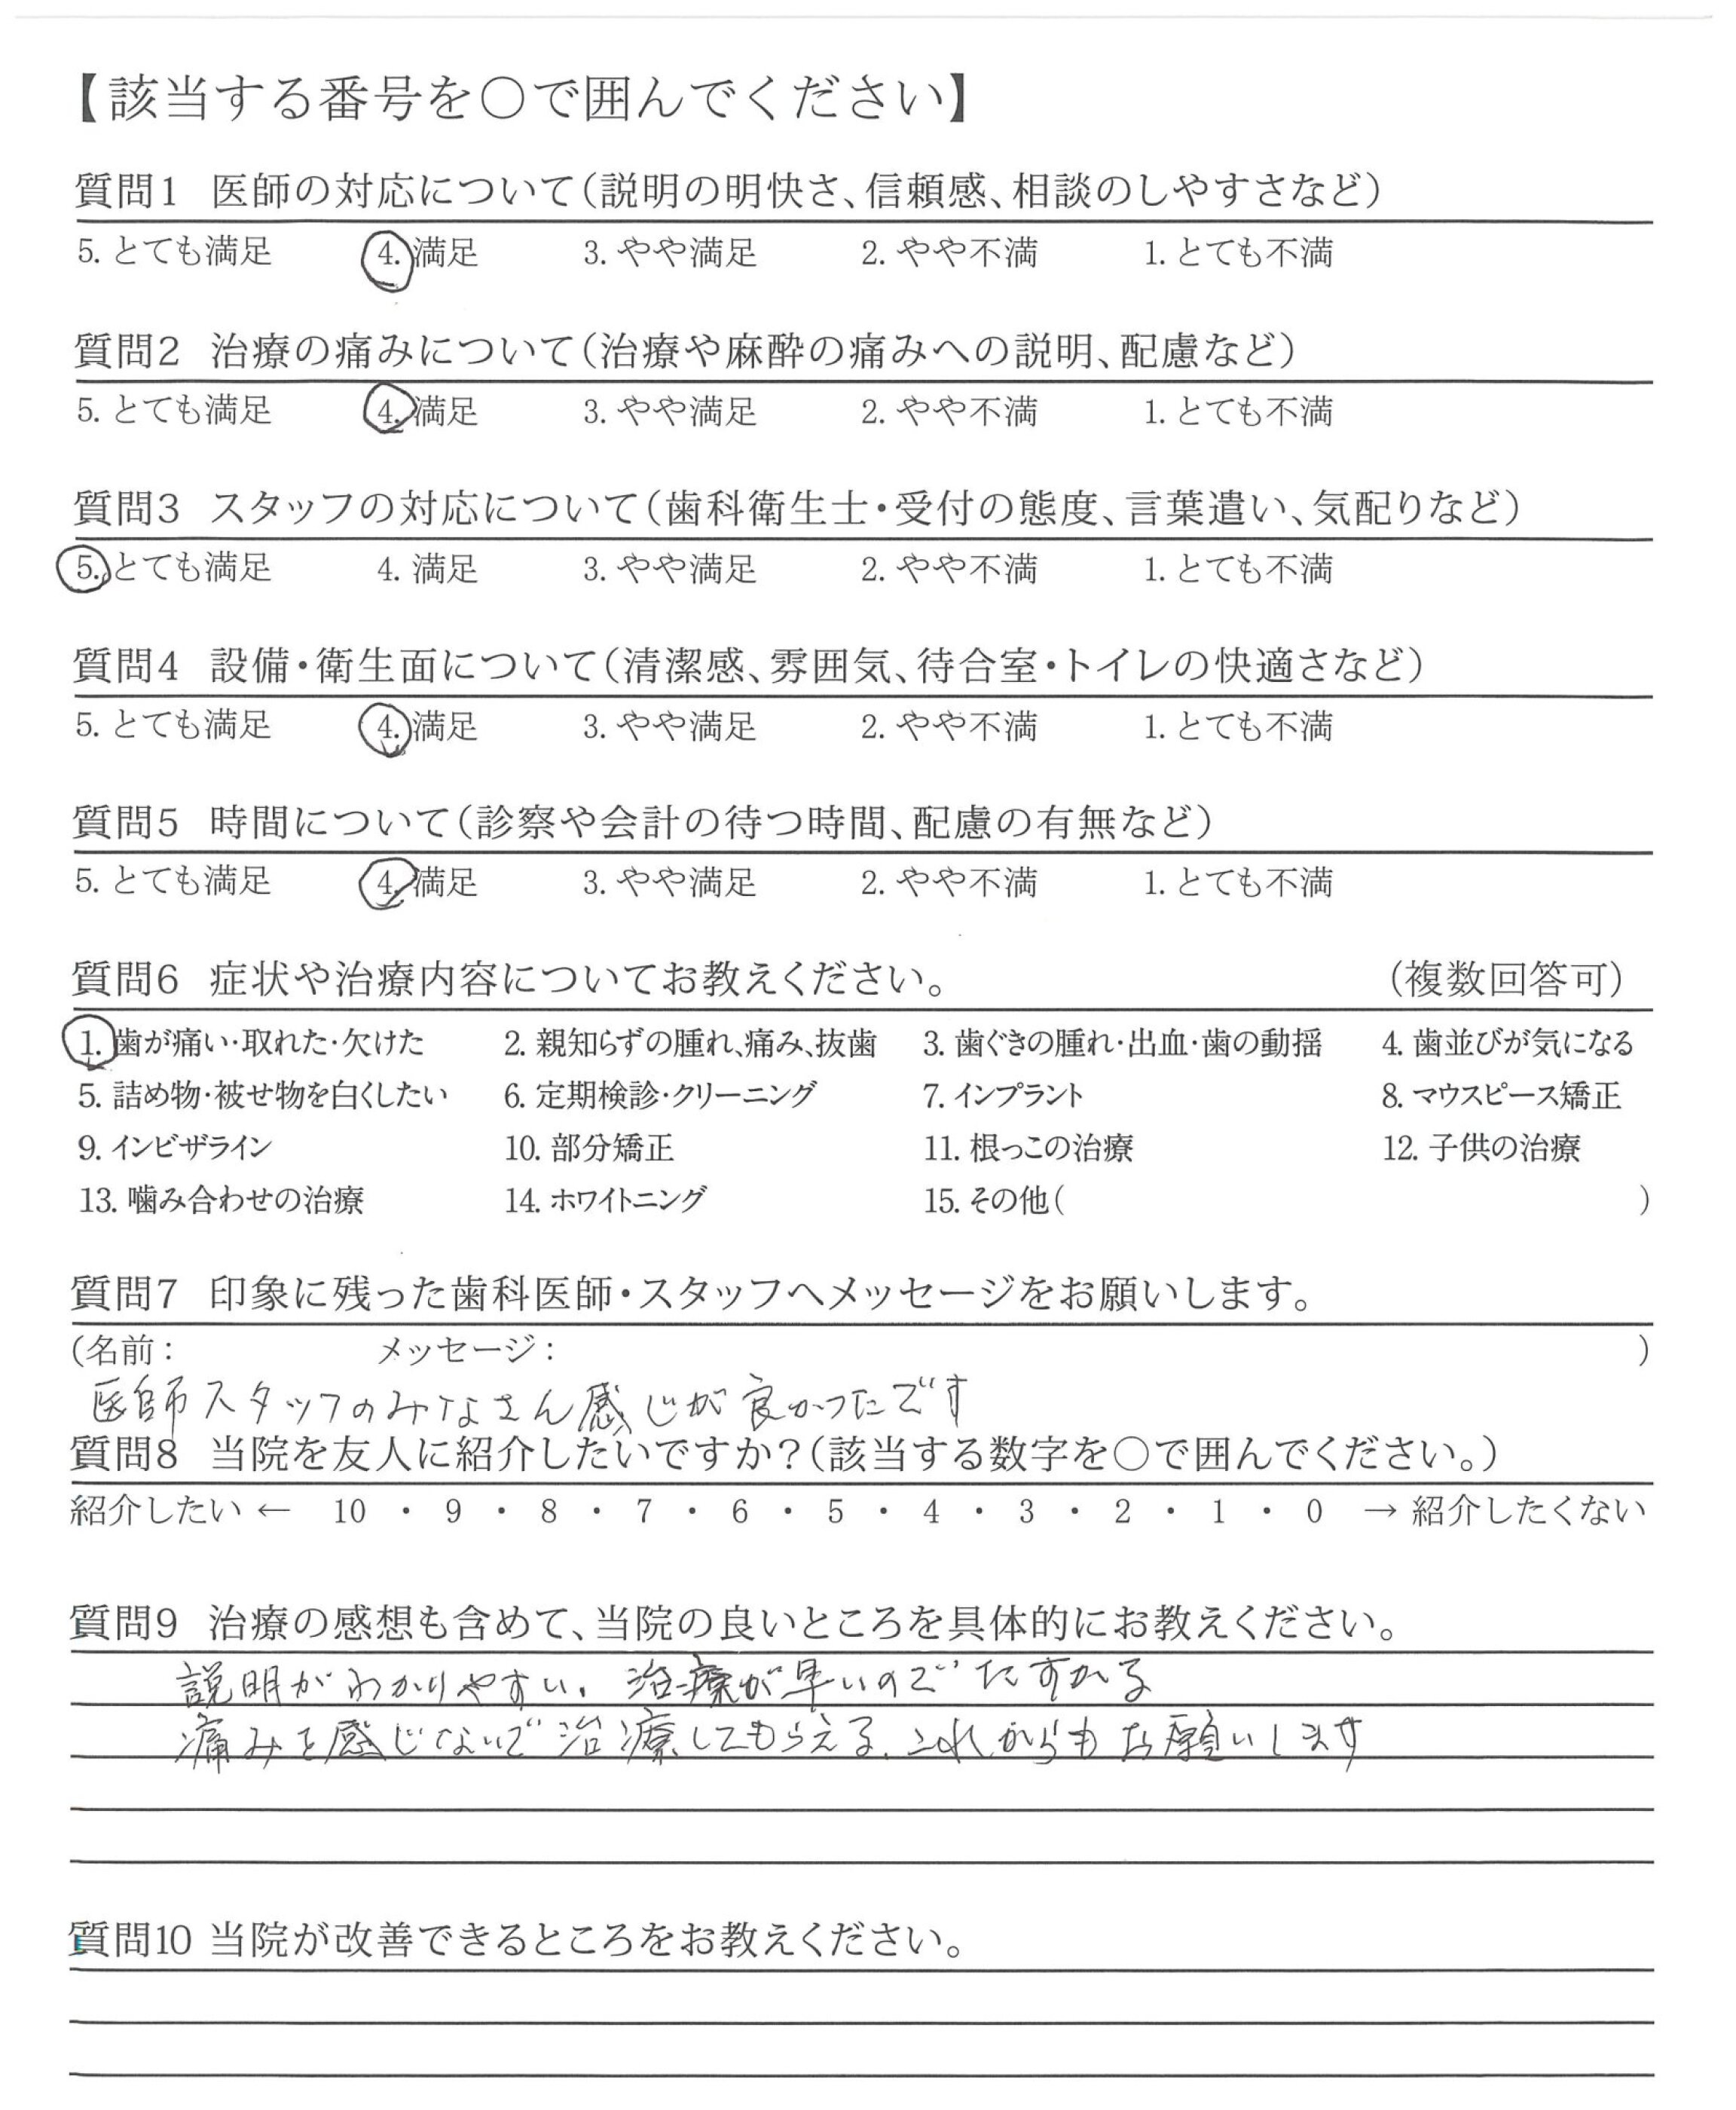 【該当する番号を○で囲んでください】
質問1 医師の対応について(説明の明快さ、信頼感、相談のしやすさなど)
5. とても満足 4. 満足 3. やや満足 2. やや不満 1. とても不満
質問2 治療の痛みについて(治療や麻酔の痛みへの説明、配慮など)
5. とても満足 4. 満足 3. やや満足 2. やや不満 1. とても不満
質問3 スタッフの対応について(歯科衛生士・受付の態度、言葉遣い、気配りなど)
5. とても満足 4. 満足 3. やや満足 2. やや不満 1. とても不満
質問4 設備・衛生面について(清潔感、雰囲気、待合室・トイレの快適さなど)
5. とても満足 4. 満足 3. やや満足 2. やや不満 1. とても不満
質問5 時間について(診察や会計の待つ時間、配慮の有無など)
5. とても満足 4. 満足 3. やや満足 2. やや不満 1. とても不満
質問6 症状や治療内容についてお教えください。 (複数回答可)
1. 歯が痛い・取れた・欠けた 2. 親知らずの腫れ、痛み、抜歯 3. 歯ぐきの腫れ・出血・歯の動揺 4. 歯並びが気になる
5. 詰め物・被せ物を白くしたい 6. 定期検診・クリーニング 7. インプラント 8. マウスピース矯正
9. インビザライン 10. 部分矯正 11. 根っこの治療 12. 子供の治療
13. 噛み合わせの治療 14. ホワイトニング 15. その他( )
質問7 印象に残った歯科医師・スタッフへメッセージをお願いします。
(名前: メッセージ: )
医師スタッフのみなさん感じが良かったです
質問8 当院を友人に紹介したいですか?(該当する数字を○で囲んでください。)
紹介したい ← 10 ・ 9 ・ 8 ・ 7 ・ 6 ・ 5 ・ 4 ・ 3 ・ 2 ・ 1 ・ 0 → 紹介したくない
質問9 治療の感想も含めて、当院の良いところを具体的にお教えください。
説明がわかりやすい。治療が早いのでたすかる
痛みを感じないで治療してもらえる。これからもお願いします
質問10 当院が改善できるところをお教えください。